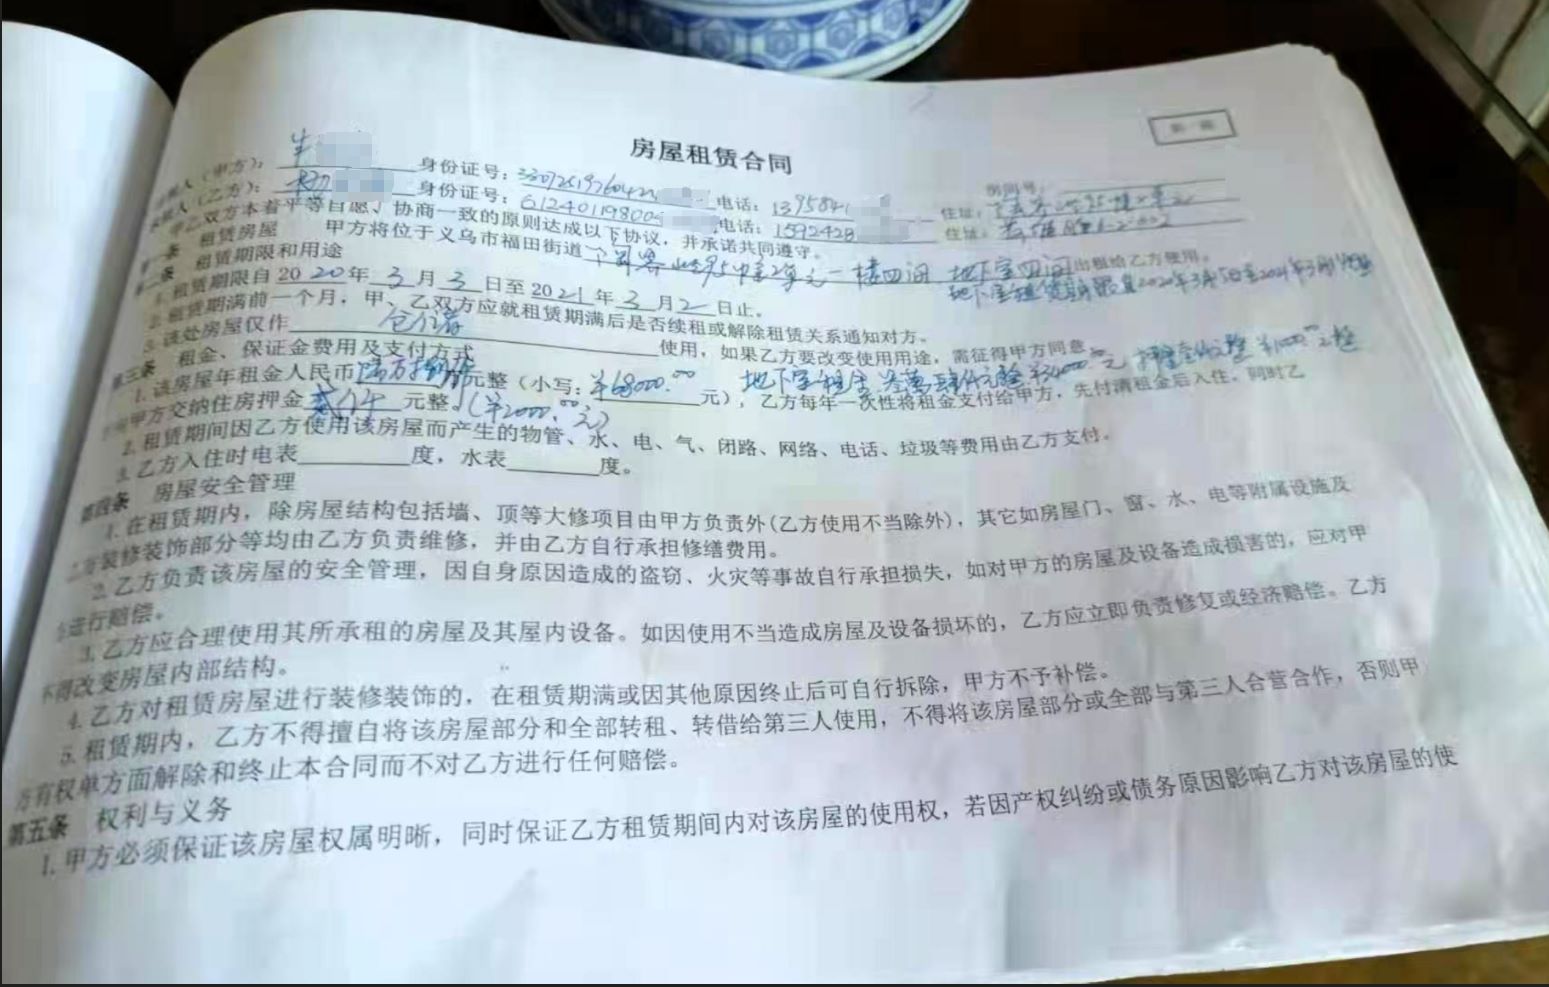 房屋租赁合同
人（甲方）： 身份证号： 电话：1395841 住址：
人（乙方）： 身份证号：612401198005 电话：1592428 住址：
甲乙双方本着平等自愿、协商一致的原则达成以下协议，并承诺共同遵守。
第一条 租赁房屋 甲方将位于义乌市福田街道 一楼四间 地下室四间 出租给乙方使用。
第二条 租赁期限和用途
1. 租赁期限自2020年3月3日至2021年3月2日止。 地下室租赁期限自2020年3月5日至2021年3月
2. 租赁期满前一个月，甲、乙双方应就租赁期满后是否续租或解除租赁关系通知对方。
3. 该处房屋仅作 仓储 使用，如果乙方要改变使用用途，需征得甲方同意
第三条 租金、保证金费用及支付方式
1. 该房屋年租金人民币 元整（小写：¥68000.00元），乙方每年一次性将租金支付给甲方，先付清租金后入住。同时乙
地下室租金 ¥34000.00元 押金 元整 ¥1000.00元整
方向甲方交纳住房押金 贰仟 元整。（¥2000.00元）
2. 租赁期间因乙方使用该房屋而产生的物管、水、电、气、闭路、网络、电话、垃圾等费用由乙方支付。
3. 乙方入住时电表 度，水表 度。
第四条 房屋安全管理
1. 在租赁期内，除房屋结构包括墙、顶等大修项目由甲方负责外(乙方使用不当除外)，其它如房屋门、窗、水、电等附属设施及
乙方装修装饰部分等均由乙方负责维修，并由乙方自行承担修缮费用。
2. 乙方负责该房屋的安全管理，因自身原因造成的盗窃、火灾等事故自行承担损失，如对甲方的房屋及设备造成损害的，应对甲
方进行赔偿。
3. 乙方应合理使用其所承租的房屋及其屋内设备。如因使用不当造成房屋及设备损坏的，乙方应立即负责修复或经济赔偿。乙方
不得改变房屋内部结构。
4. 乙方对租赁房屋进行装修装饰的，在租赁期满或因其他原因终止后可自行拆除，甲方不予补偿。
5. 租赁期内，乙方不得擅自将该房屋部分和全部转租、转借给第三人使用，不得将该房屋部分或全部与第三人合营合作，否则甲
方有权单方面解除和终止本合同而不对乙方进行任何赔偿。
第五条 权利与义务
1. 甲方必须保证该房屋权属明晰，同时保证乙方租赁期间内对该房屋的使用权，若因产权纠纷或债务原因影响乙方对该房屋的使